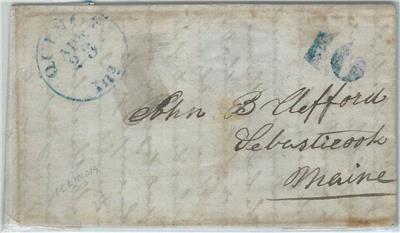 QUINCY
23
Ills
10
John B Clifford
Sebasticook
Maine
ILLINOIS